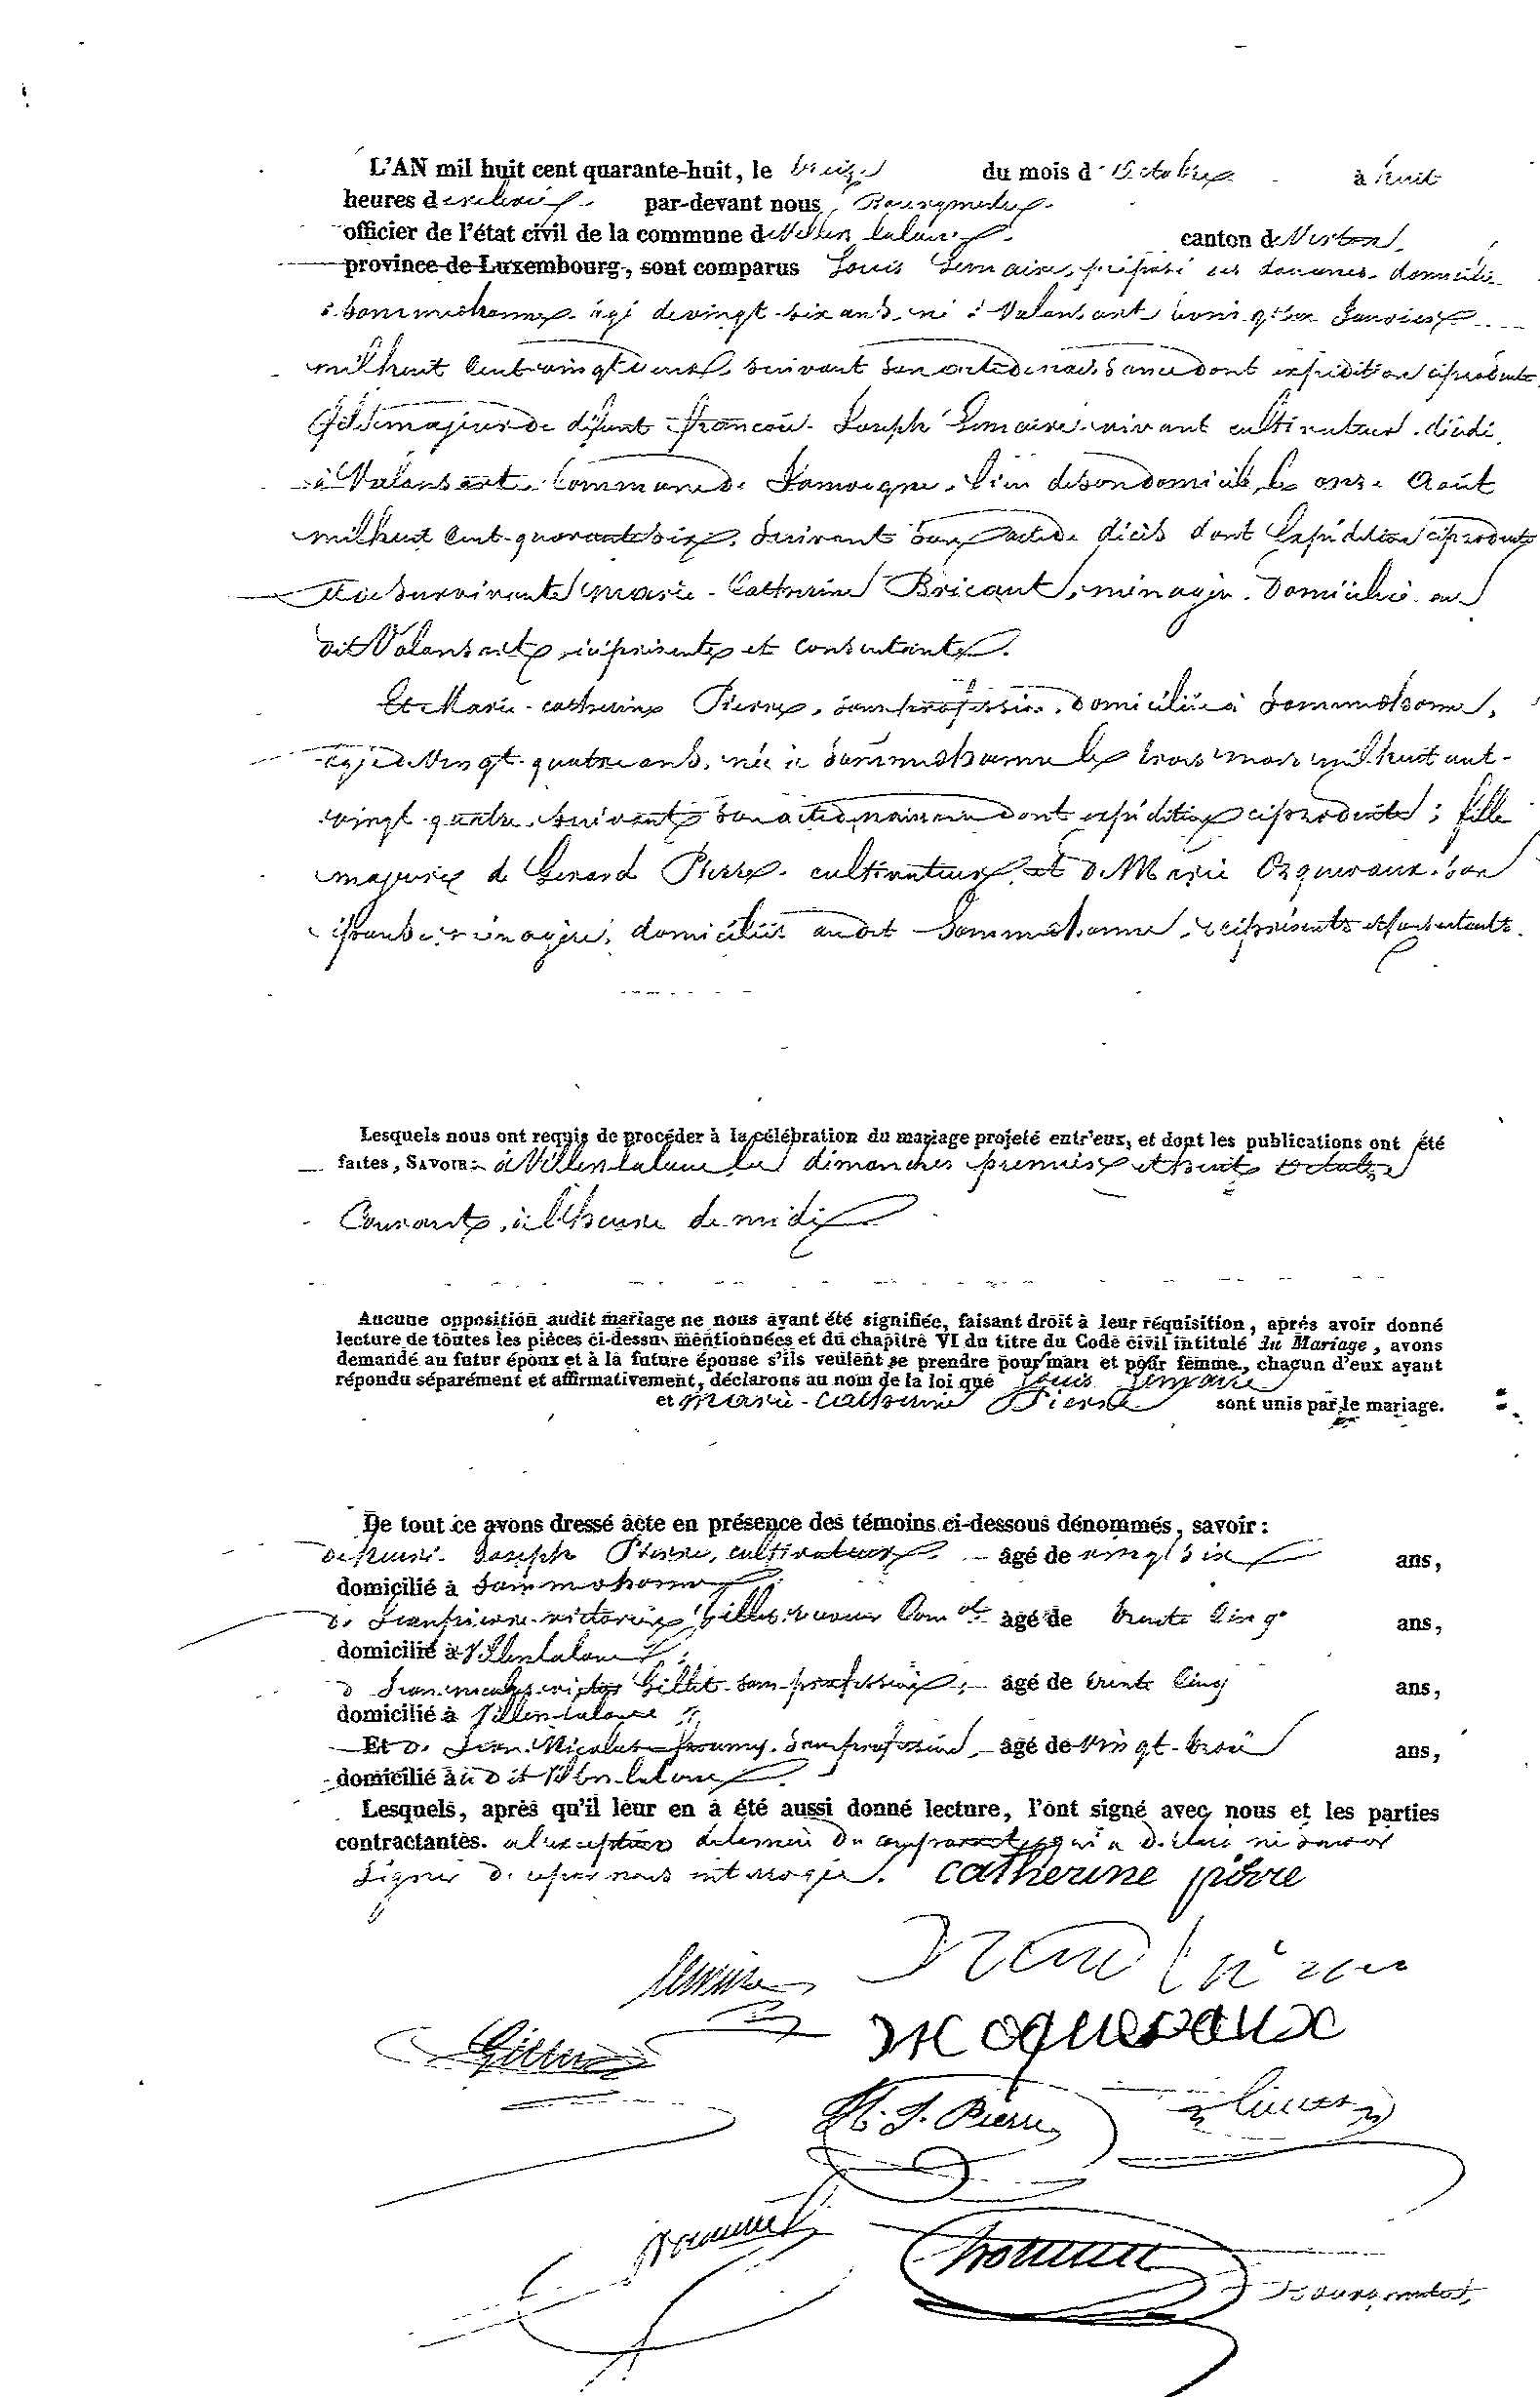 L'AN mil huit cent quarante-huit, le treize du mois d'Octobre à huit
heures de relevée par-devant nous, Bourgmestre
officier de l'état civil de la commune de Villers la loue canton de Virton
province de Luxembourg, sont comparus Louis Lemaire, préposé des douanes, domicilié
à Sommethonne, âgé de vingt six ans, né à Valansart Janvier
mil huit cent vingt deux, suivant son acte de naissance dont expédition ci produite
fils majeur de défunt François Joseph Lemaire vivant cultivateur, décédé
à Valansart, Commune de Jamoigne, lieu de son domicile, le onze Août
mil huit cent quarante six, suivant son acte de décès dont l'expédition ci produite
et de survivante Marie-Catherine Bricart, ménagère, Domiciliée au
dit Valansart, ici présente et consentante.
Et Marie-catherine Pierre, sans profession, Domiciliée à Sommethonne,
âgée de Vingt-quatre ans, née à Sommethonne le trois mars mil huit cent-
vingt quatre, suivant son acte de naissance dont expédition ci produite; fille
majeure de Gerard Pierre, cultivateur, et de Marie Oqueraux, son
épouse, ménagère, domiciliés au dit Sommethonne, ici présents et consentants.
Lesquels nous ont requis de procéder à la célébration du mariage projeté entr'eux, et dont les publications ont été
faites, SAVOIR: à Villers la loue les dimanches premier et huit Octobre
Courant, à l'heure de midi
Aucune opposition audit mariage ne nous ayant été signifiée, faisant droit à leur réquisition, après avoir donné
lecture de toutes les pièces ci-dessus mentionnées et du chapitre VI du titre du Code civil intitulé du Mariage, avons
demandé au futur époux et à la future épouse s'ils veulent se prendre pour mari et pour femme, chacun d'eux ayant
répondu séparément et affirmativement, déclarons au nom de la loi que Louis Lemaire
et Marie-Catherine Pierre sont unis par le mariage.
De tout ce avons dressé acte en présence des témoins ci-dessous dénommés, savoir:
de Henri-Joseph Pierre, cultivateur, âgé de vingt six ans,
domicilié à Sommethonne
de Jean pierre victorien Gillet, receveur Com.al âgé de trente cinq ans,
domicilié à Villers la loue;
d Jean-nicolas-victor Gillet, sans profession, âgé de trente cinq ans,
domicilié à Villers-la loue
Et de Jean-Nicolas, sans profession, âgé de vingt-trois ans,
domicilié à u Dit Villers-la loue.
Lesquels, après qu'il leur en a été aussi donné lecture, l'ont signé avec nous et les parties
contractantes. à l'exception de la mère du comparant, qui a déclaré ne savoir
signer de ce par nous interrogée. catherine pierre
Lemaire
M oqueraux
Gillet
H. J. Pierre
Bourgmestre